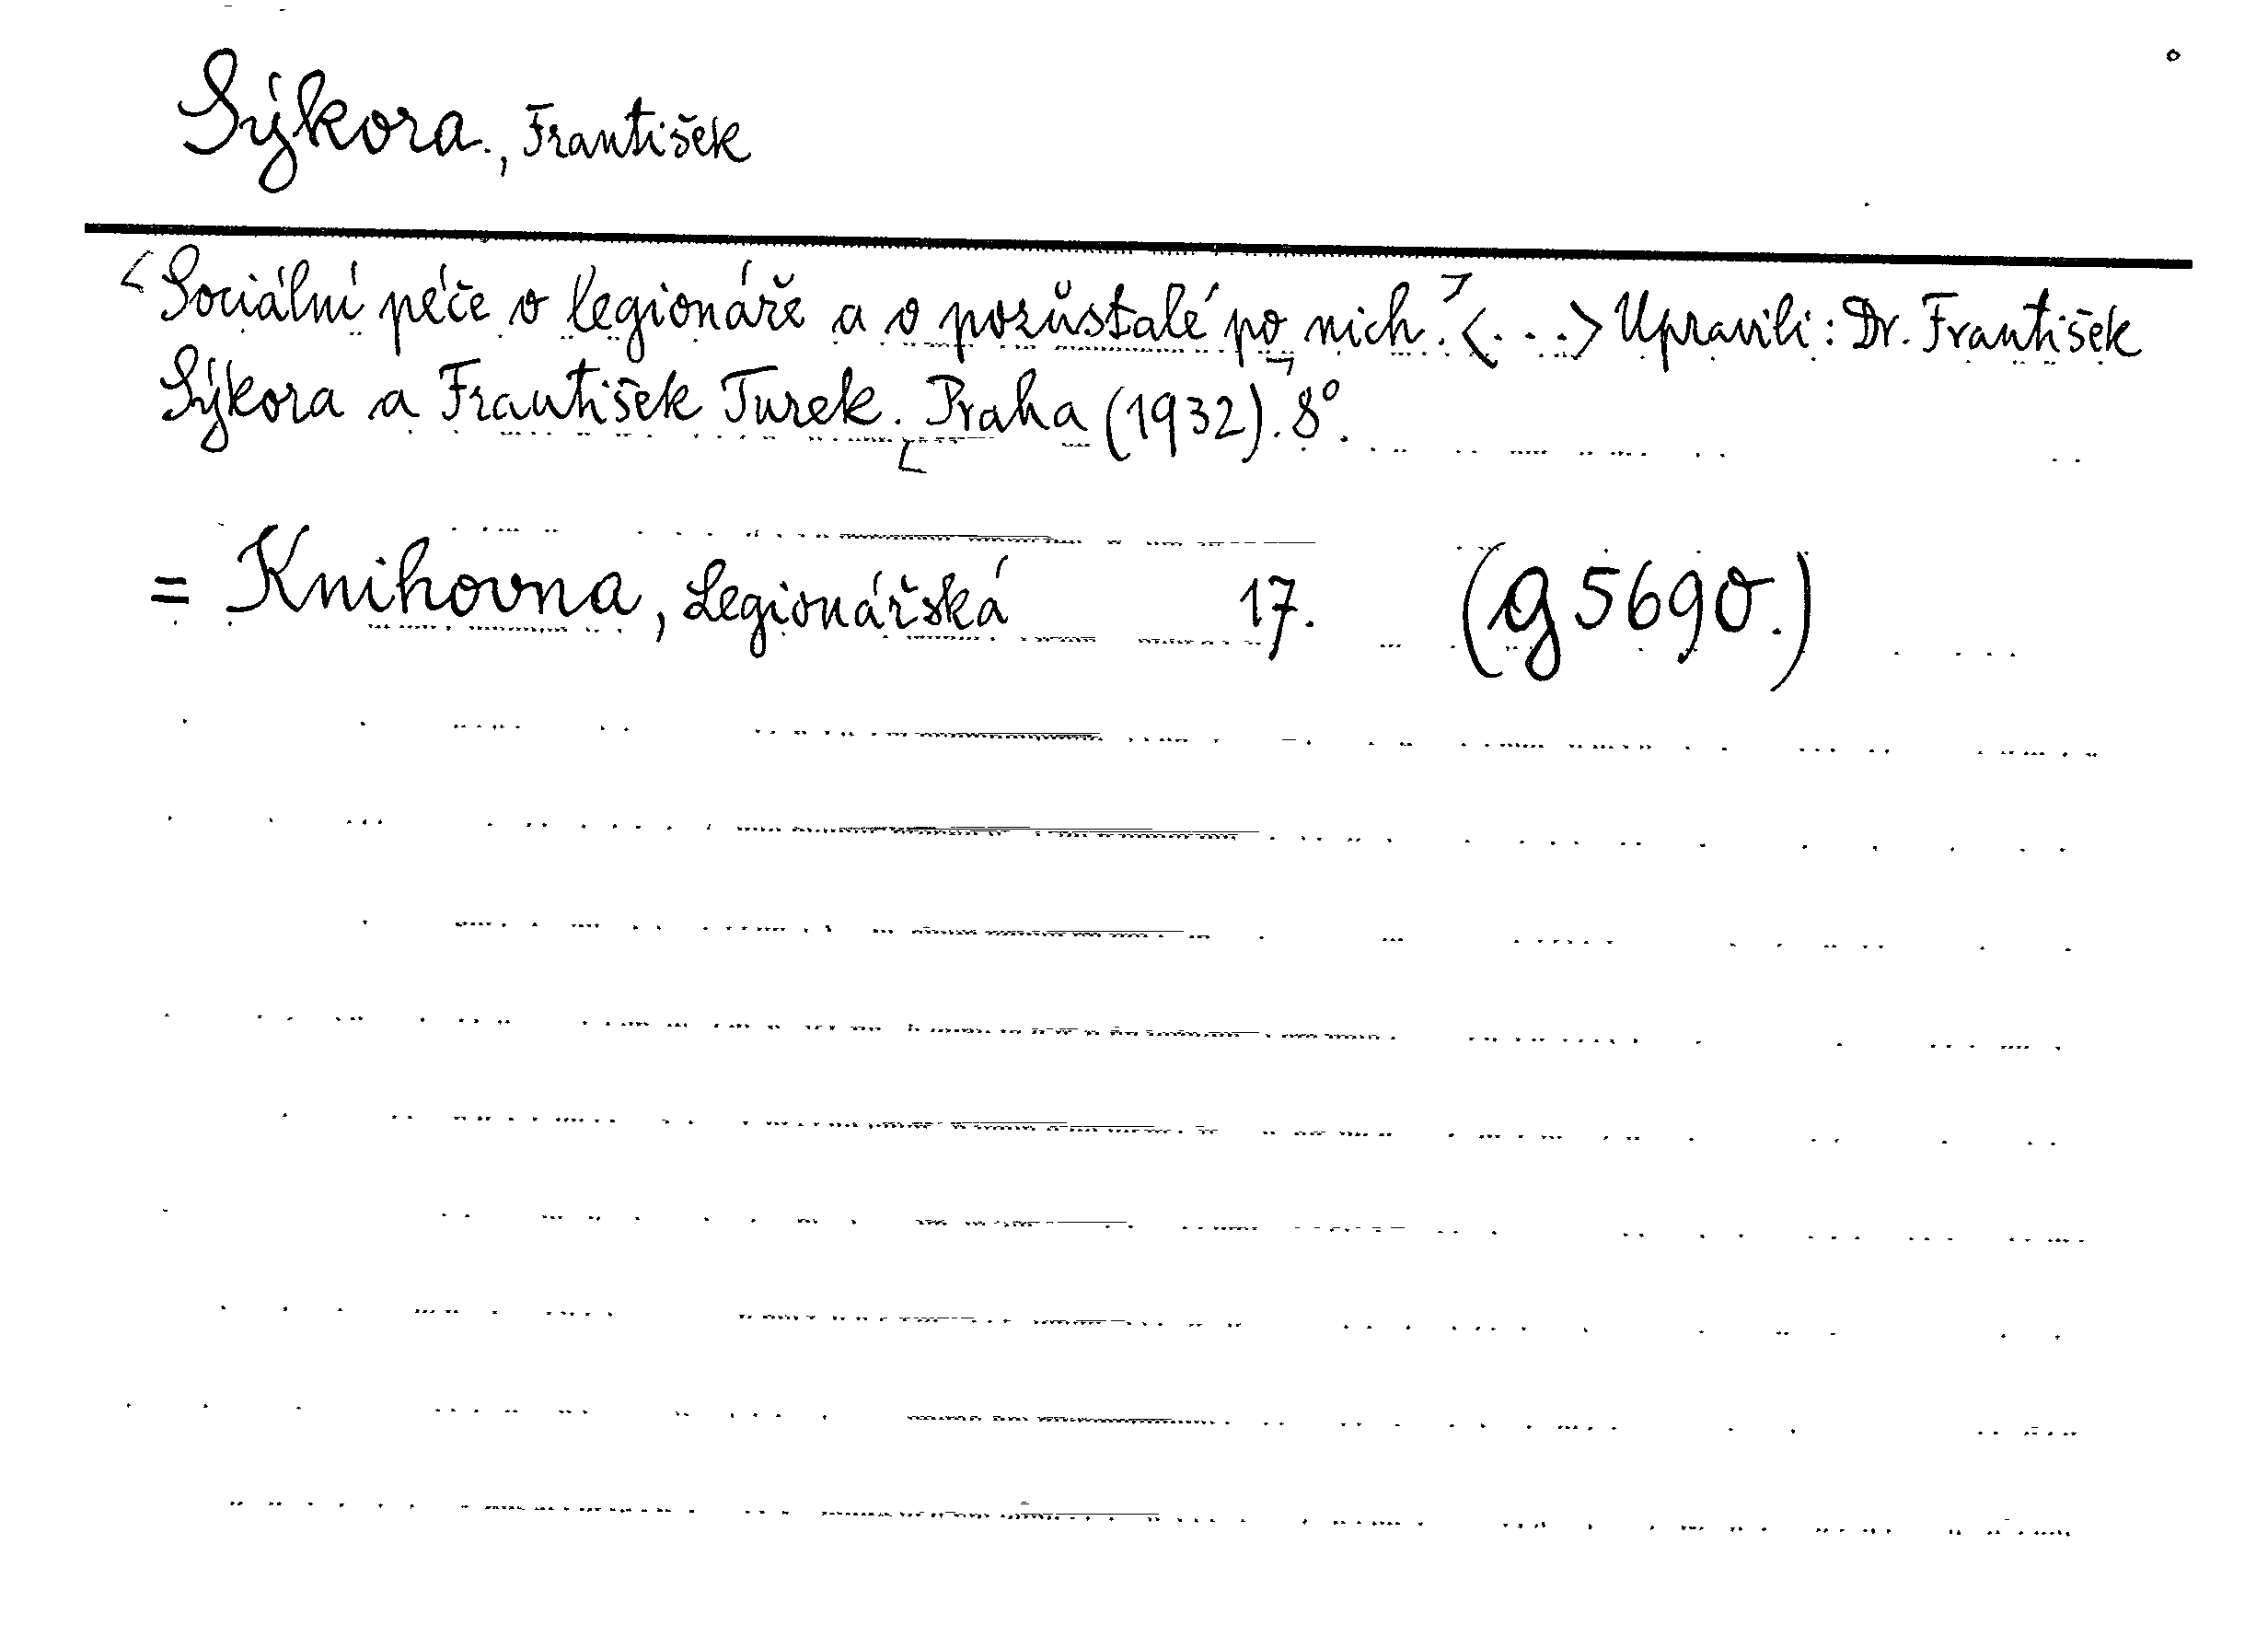 Sýkora., František
Sociální péče o legionáře a o pozůstalé po nich. <...> Upravili: Dr. František
Sýkora a František Turek. Praha (1932). 8°.
= Knihovna, Legionářská 17. (g 5690.)